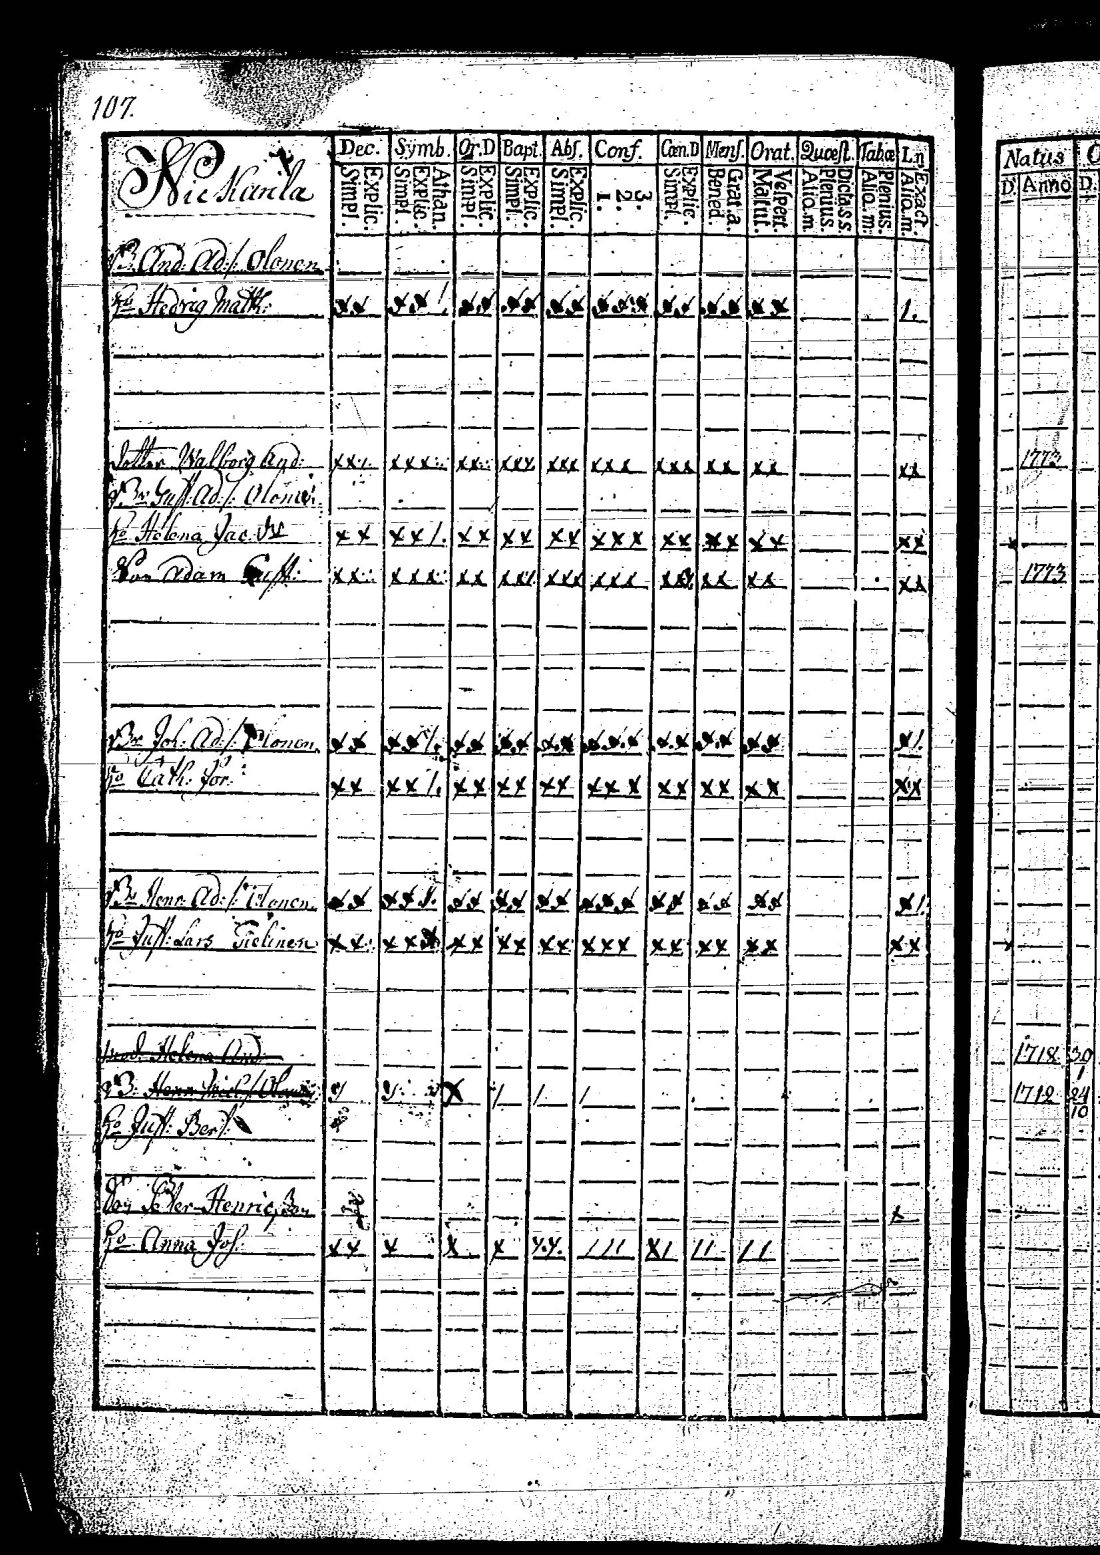 107.
Nickarila
Dec. Symb. Or.D Bapt. Abs. Conf. Cœn.D Mens. Orat. Quæst. Tabæ Ln
Simpl. Explic. Simpl. Explic. Athan. Simpl. Explic. Simpl. Explic. Simpl. Explic. 1. 2. 3. Simpl. Explic. Bened. Grat.a. Matut. Vespert. Alio.m Plenius. Dicta s.s. Alio.m. Plenius. Alio.m. Exact.
Natus
D Anno D.
B. And: Ad:s: Olonen
ho Hedvig Matth: xx xx/. xx xx xx xxx xx xx xx 1.
dotter Walborg And: xx xxx xx xxx xxx xxx xxx xx xx xx 1773
Br Gust. Ad:s: Olonen
ho Helena Jac: xx xx/. xx xx xx xxx xx xx xx xx
Son Adam Gust: xx xxx xx xxx xxx xxx xxx xx xx xx 1773
Br Joh: Ad:s: Olonen xx xx/. xx xx xx xxx xx xx xx x/.
ho Cath: Jör: xx xx/. xx xx xx xxx xx xx xx xx
Br Henr: Ad:s: Olonen xx xxx. xx xx xx xxx xx xx xx x/.
ho Just: Lars xx xxx xx xx xx xxx xx xx xx xx
Helena And: 1718 30/1
B. Henr: 1712 24/10
ho Just: Bert:
Son Peter Henric,son x
ho Anna Joh: xx x x x x.x. /// x/ // //